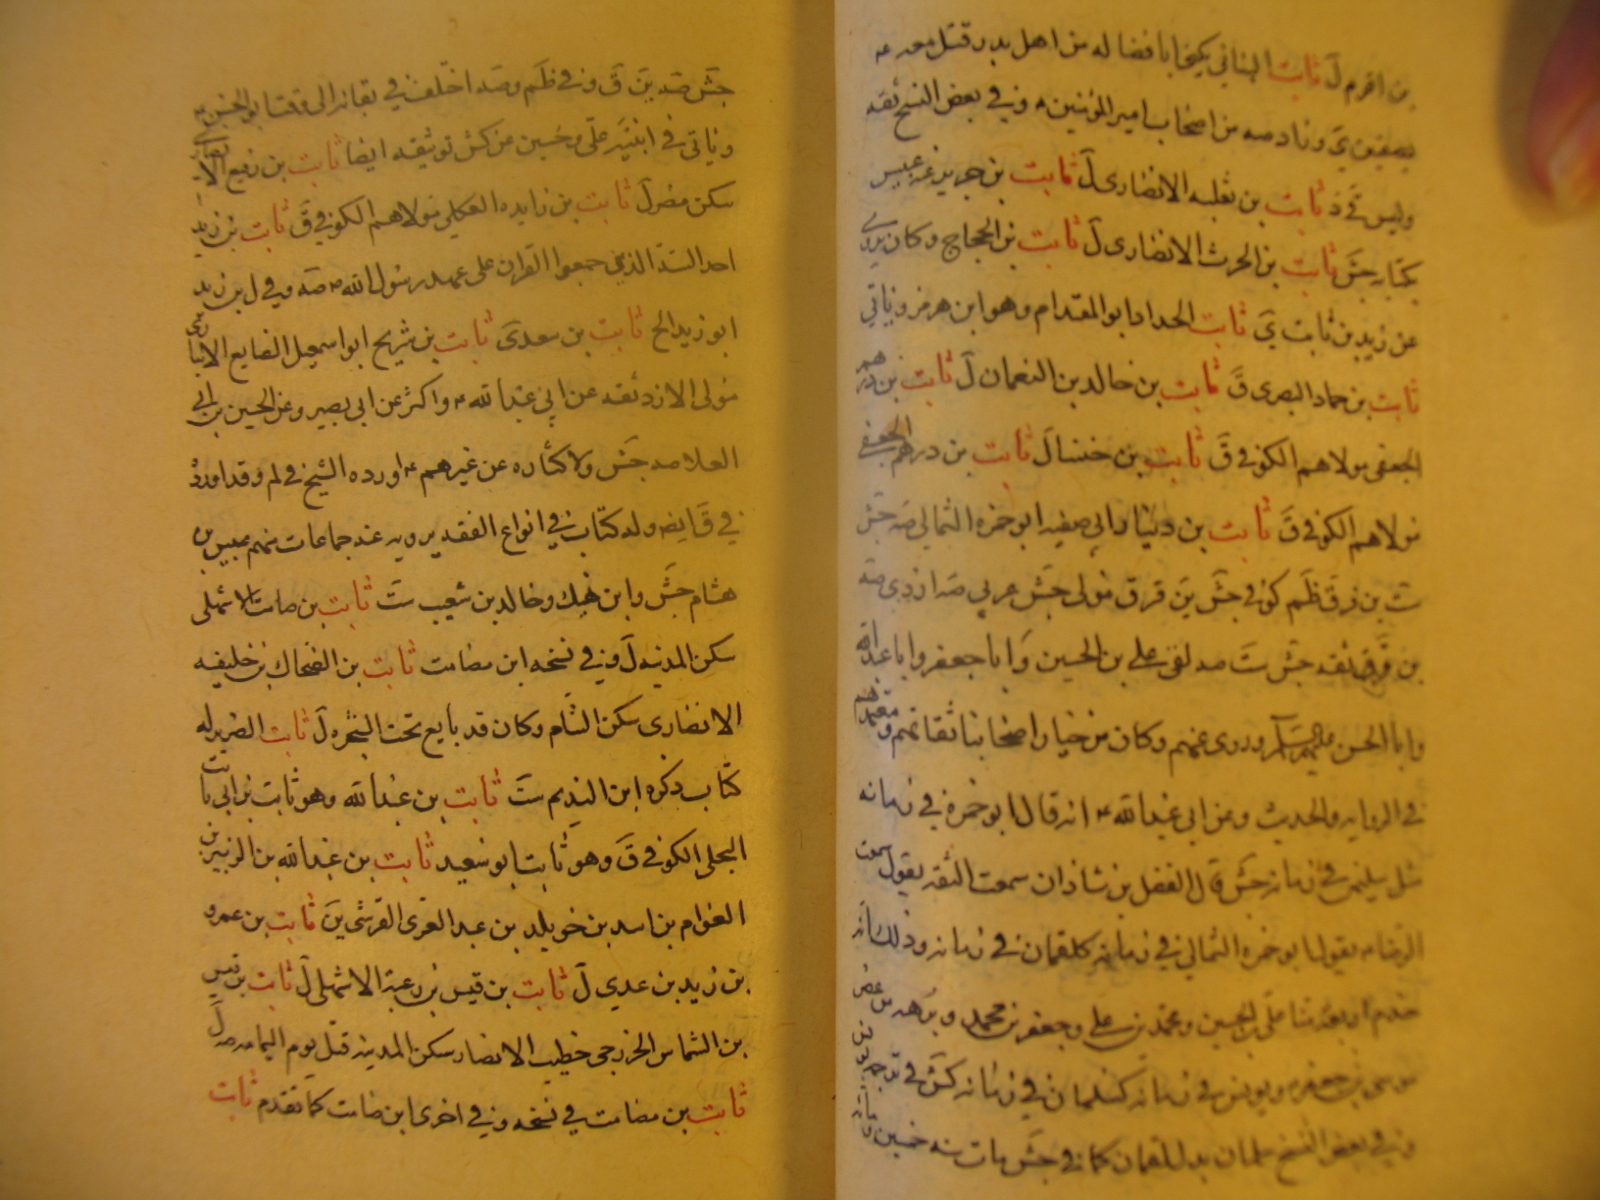 من اقرم ل ثابت البناني يكنى ابا فضاله من اهل بدر قتل معه ع
بصفين ي وزاد صه من اصحاب امير المؤمنين ع وفي بعض النسخ ثقه
وليس في ذ ثابت بن ثعلبه الانصارى ل ثابت بن جرير عنه عبيس
كتابه جش ثابت بن الحرث الانصارى ل ثابت بن الحجاج وكان يروي
عن زيد بن ثابت ي ثابت الحداد ابو المقدام وهو ابن هرمز وياتي
ثابت بن حماد البصرى ق ثابت بن خالد بن النعمان ل ثابت بن درهم
الجعفى مولاهم الكوفي ق ثابت بن خنسا ل ثابت بن درهم الجعفي
مولاهم الكوفي ق ثابت بن دينار ابي صفيه ابو حمزه الثمالي صه جش
ست بن ق ظم كوفي جش ين ق ق مولى جش عربي صه ازدى صه
بن ق ثقه جش ست صه لقى علي بن الحسين وابا جعفر وابا عبدالله
وابا الحسن عليهم السلام وروى عنهم وكان من خيار اصحابنا وثقاتهم ومعتمدهم
في الروايه والحديث وعن ابي عبدالله ع انه قال ابو حمزة في زمانه
مثل سلمن في زمانه جش قال الفضل بن شاذان سمعت الثقه يقول سمعت
الرضا ع يقول ابو حمزه الثمالي في زمانه كلقمان في زمانه وذلك انه
خدم اربعة منا على بن الحسين ومحمد بن علي وجعفر بن محمد وبرهه من عصر
موسى بن جعفر ويونس في زمانه كسلمان في زمانه كش في ترجمة يونس
وفي بعض النسخ سلمان بدل لقمان كما في جش مات سنه خمسين ومائه
جش صه ين ق وفي ظم وصه اختلف في بقائه الى وقت ابو الحسن ع
وياتي في ابنيه على وحسين عن كش توثيقه ايضا ثابت بن رفيع الانصارى
سكن مصر ل ثابت بن زايده العكلي مولاهم الكوفي ق ثابت بن زيد
احد الستة الذين جمعوا القران على عهد رسول الله ص صه وفي ل بن زيد
ابو زيد الخ ثابت بن سعد ى ثابت بن شريح ابو اسمعيل الصايغ الانبارى
مولى الازد ثقه عن ابي عبدالله ع واكثر عن ابى بصير وعن الحسين بن ابي
العلا صه جش ولاكثاره عن غيرهم ع اورده الشيخ في لم وقد اورده
في ق ايضا وله كتاب في انواع الفقه يرويه عنه جماعات منهم عبيس بن
هشام جش وابن نهيك وخالد بن شعيب ست ثابت بن صامت الاشهلى
سكن المدينه ل وفي نسخه ابن مصامت ثابت بن الضحاك بن خليفه
الانصارى سكن الشام وكان قد بايع تحت الشجره ل ثابت الضرير له
كتاب ذكره ابن النديم ست ثابت بن عبدالله وهو ثابت بن ابي ثابت
البجلى الكوفي ق وهو ثابت ابو سعيد ثابت بن عبدالله بن الزبير بن
العوام بن اسد بن خويلد بن عبد العزى القرشى ين ثابت بن عمرو
بن زيد بن عدي ل ثابت بن قيس بن زعبة الاشهلى ل ثابت بن قيس
بن الشماس الخزرجى خطيب الانصار سكن المدينه قتل يوم اليمامه صه ل
ثابت بن مصامت في نسخه وفي اخرى ابن صامت كما تقدم ثابت